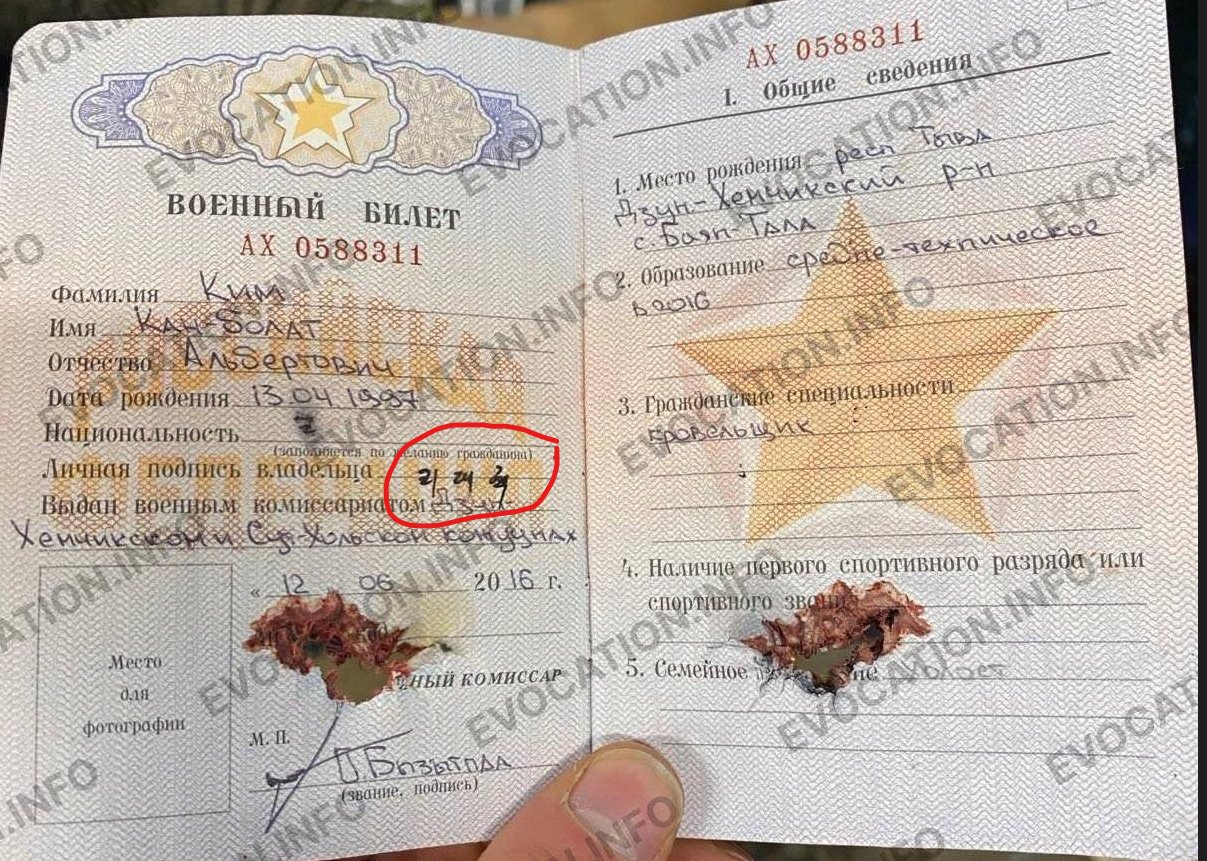 ВОЕННЫЙ БИЛЕТ
АХ 0588311
Фамилия Ким
Имя Кан-Болат
Отчество Альбертович
Дата рождения 13 04 1997
Национальность
(заполняется по желанию гражданина)
Личная подпись владельца
Выдан военным комиссариатом Дзун-
Хемчикском и Сур-Хольской кожуунах
« 12 06 2016 г.
НЫЙ КОМИССАР
Место
для
фотографии
М. П.
(звание, подпись)
АХ 0588311
1. Общие сведения
1. Место рождения респ Тыва
Дзун-Хемчикский р-н
с. Баян-Тала
2. Образование средне-техническое
в 2016
3. Гражданские специальности
кровельщик
4. Наличие первого спортивного разряда или
спортивного
5. Семейное
EVOCATION.INFO